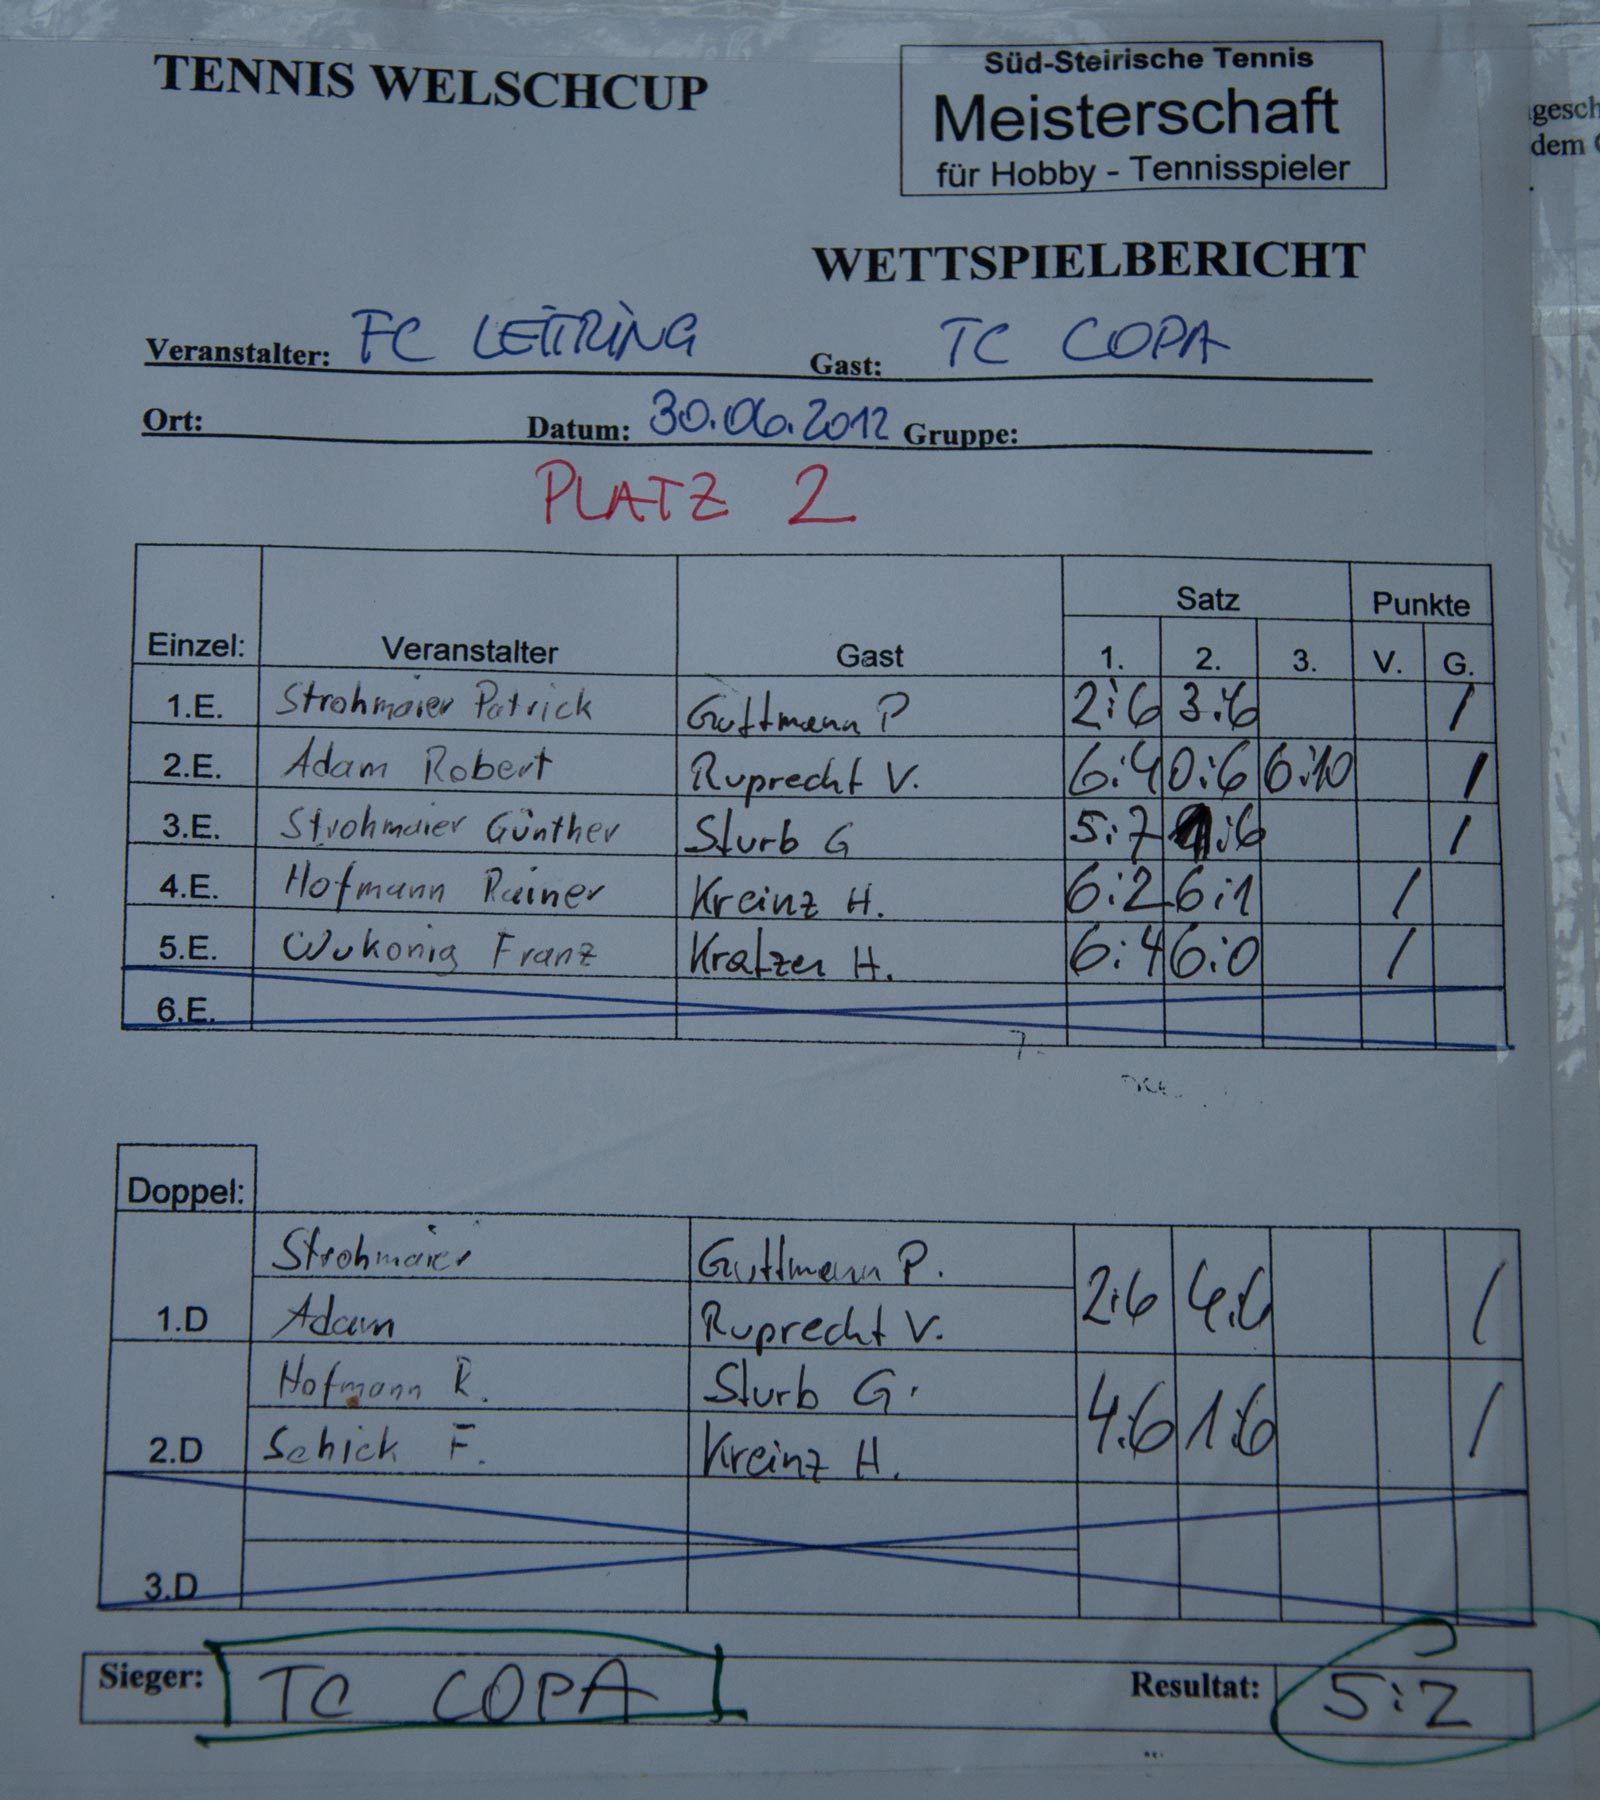 TENNIS WELSCHCUP
Süd-Steirische Tennis
Meisterschaft
für Hobby - Tennisspieler
gesch
dem
WETTSPIELBERICHT
Veranstalter: FC LEITRING Gast: TC COPA
Ort: Datum: 30.06.2012 Gruppe:
PLATZ 2
Satz Punkte
Einzel: Veranstalter Gast 1. 2. 3. V. G.
1.E. Strohmaier Patrick Guttmann P 2:6 3:6 /
2.E. Adam Robert Ruprecht V. 6:4 0:6 6:10 /
3.E. Strohmaier Günther Sturb G 5:7 :6 /
4.E. Hofmann Rainer Kreinz H. 6:2 6:1 /
5.E. Wukonig Franz Kratzer H. 6:4 6:0 /
6.E.
Doppel:
Strohmaier Guttmann P.
1.D Adam Ruprecht V. 2:6 4:6 /
Hofmann R. Sturb G.
2.D Schick F. Kreinz H. 4:6 1:6 /
3.D
Sieger: TC COPA Resultat: 5:2